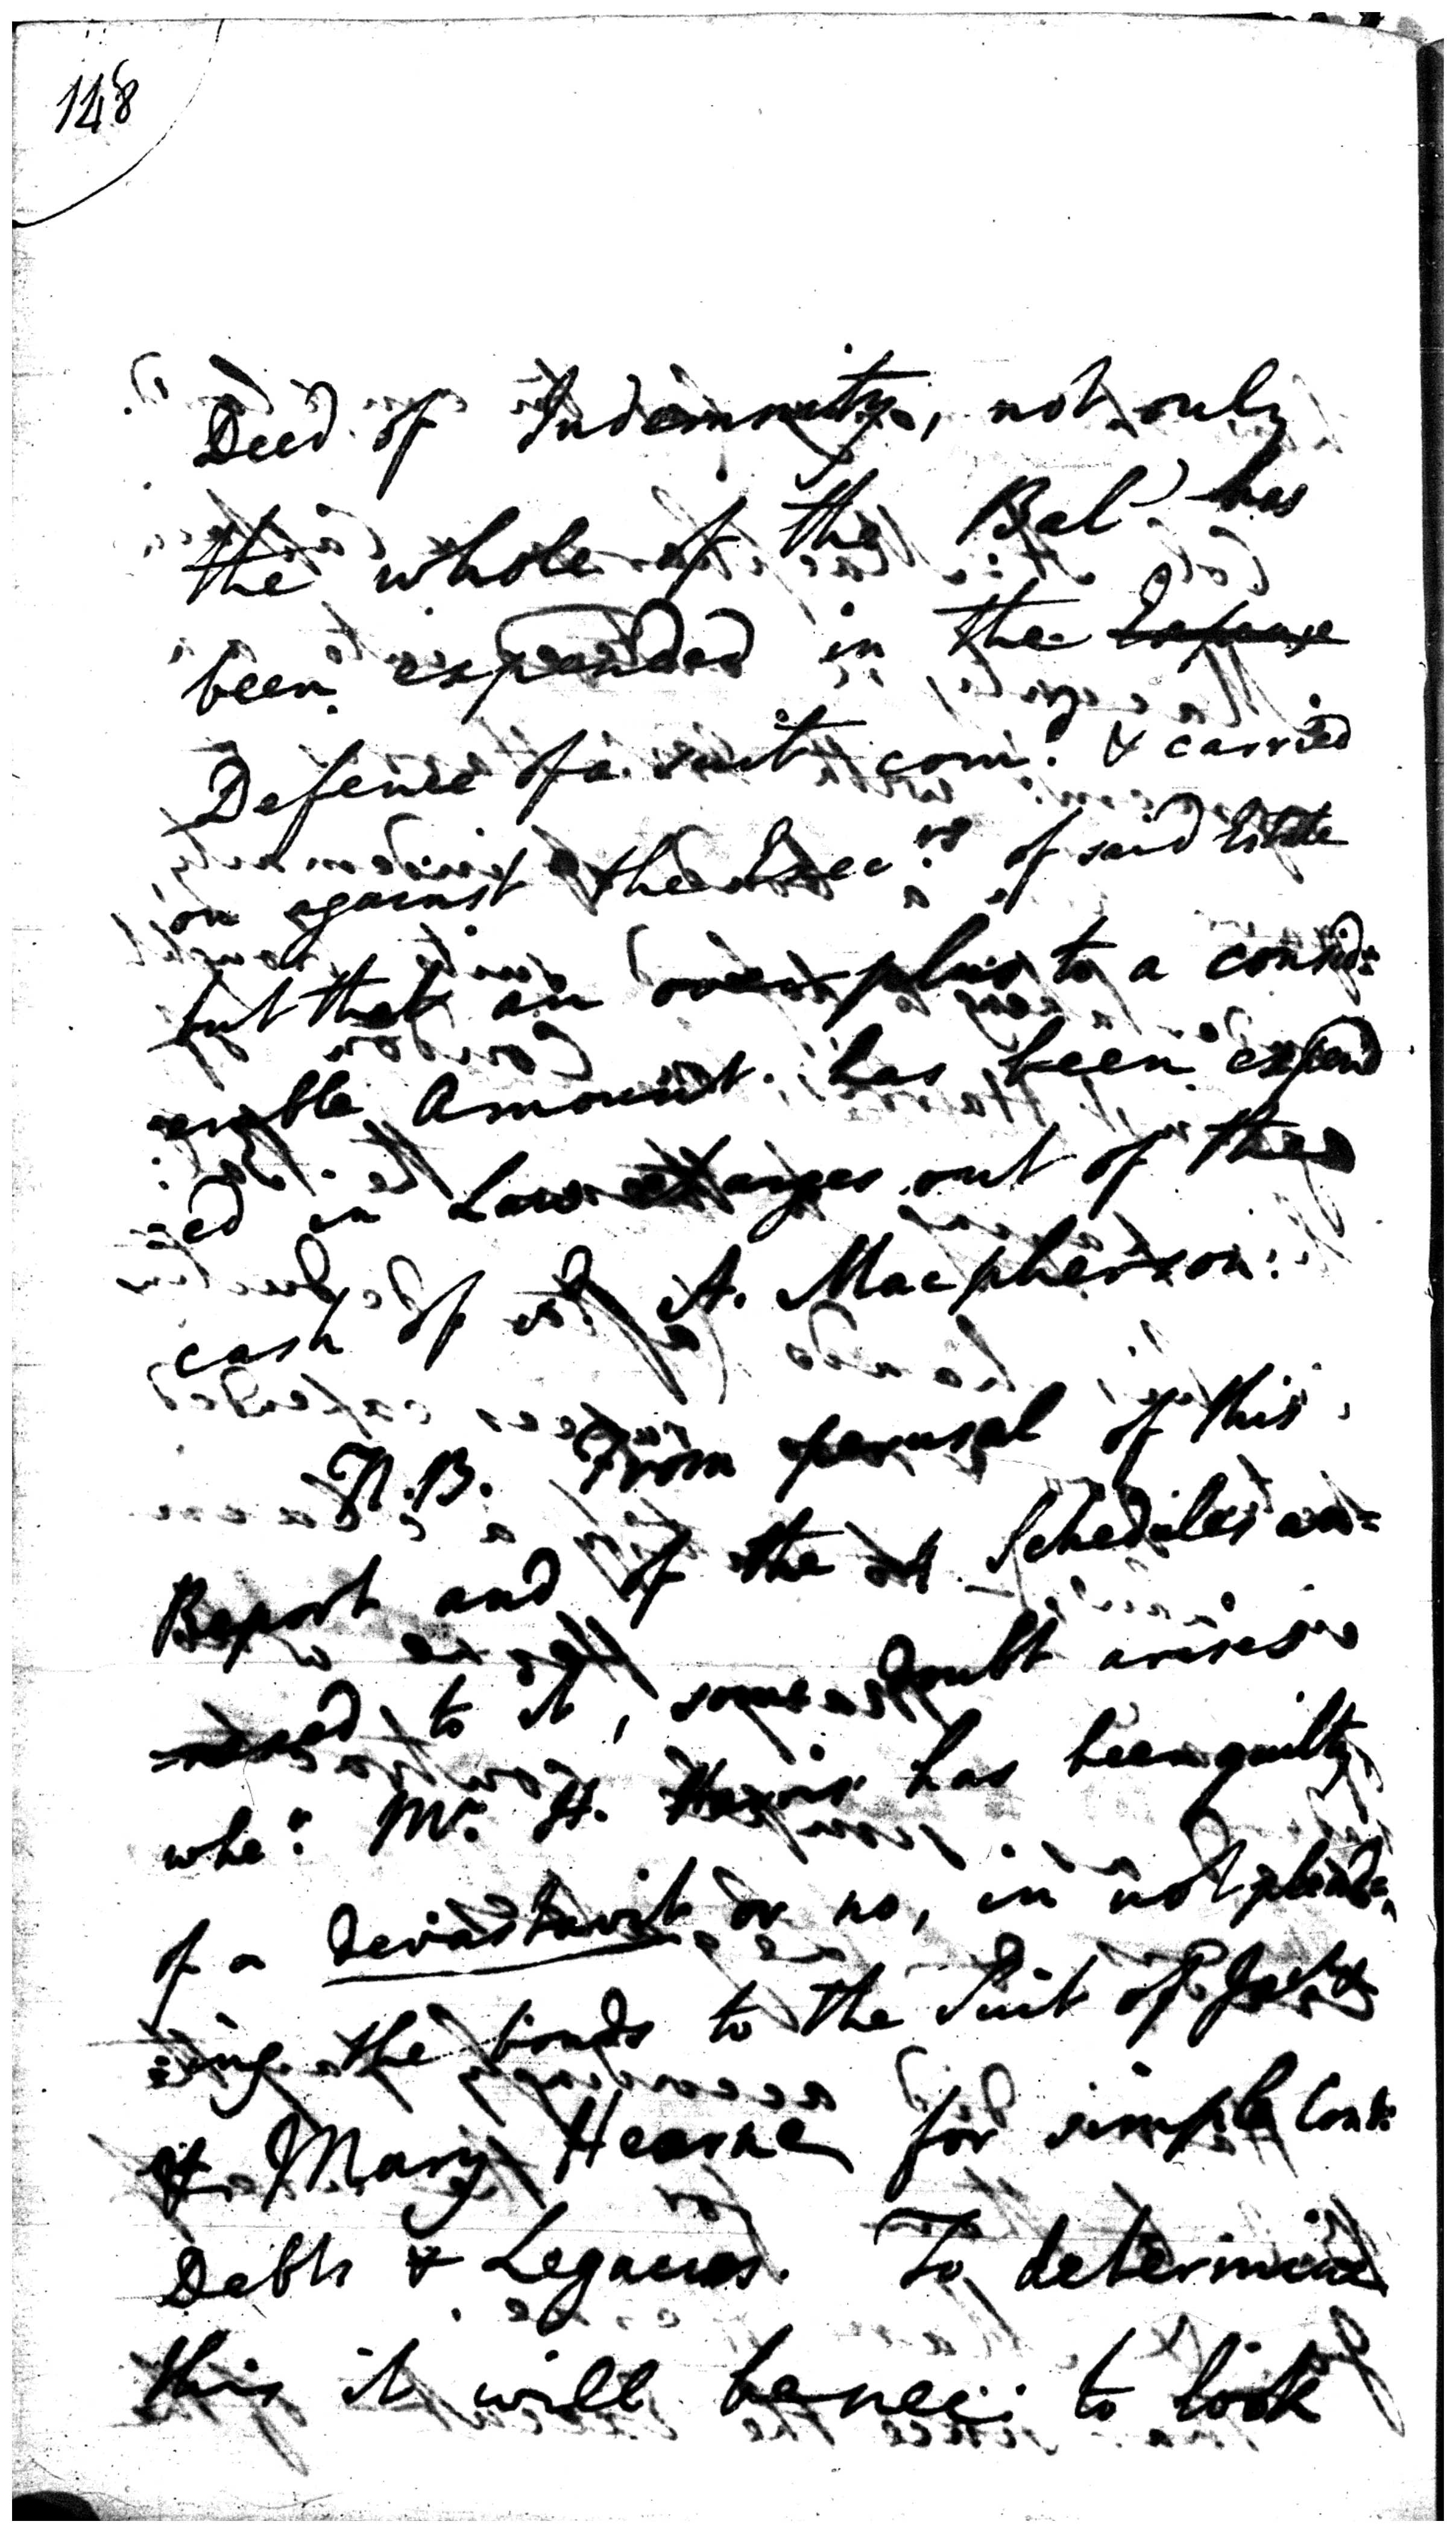 148
Deed of Indemnity, not only
the whole of the Bal: has
been expended in the Expense
Defence of a suit com: & carried
on against the Exec:rs of said Estate
but that an overplus to a consid=
erable Amount has been expend
=ed in Law charges out of the
cash of A. Macpherson:
N.B. From perusal of this
Report and of the Schedules an=
nexed to it, some doubt arises
whe:r Mr. H. Harris has been guilty
of a Devastavit or no, in not plead=
=ing the bonds to the Suit of
& Mary Hearne for simple Cont:
Debts & Legacies. To determine
this it will be nec: to look